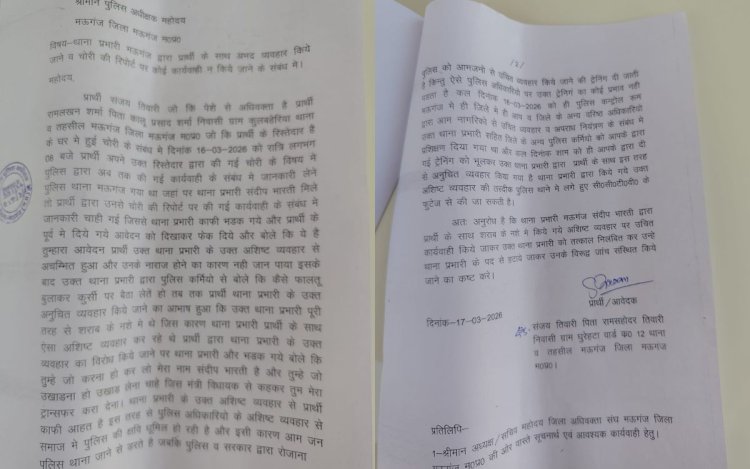 श्रीमान पुलिस अधीक्षक महोदय
मऊगंज जिला मऊगंज म०प्र०
विषय–थाना प्रभारी मऊगंज द्वारा प्रार्थी के साथ अभद्र व्यवहार किये
जाने व चोरी की रिपोर्ट पर कोई कार्यवाही न किये जाने के संबंध मे।
महोदय,
प्रार्थी संजय तिवारी जो कि पेशे से अधिवक्ता है प्रार्थी
रामलखन शर्मा पिता कालू प्रसाद शर्मा निवासी ग्राम कुलबहेरिया थाना
व तहसील मऊगंज जिला मऊगंज म०प्र० जो कि प्रार्थी के रिस्तेदार है
के घर मे हुई चोरी के संबंध मे दिनांक 16–03–2026 को रात्रि लगभग
08 बजे प्रार्थी अपने उक्त रिस्तेदार द्वारा की गई चोरी के विषय मे
पुलिस द्वारा अब तक की गई कार्यवाही के संबंध मे जानकारी लेने
पुलिस थाना मऊगंज गया था जहां पर थाना प्रभारी संदीप भारती मिले
तो प्रार्थी द्वारा उनसे चोरी की रिपोर्ट पर की गई कार्यवाही के संबंध मे
जानकारी चाही गई जिससे थाना प्रभारी काफी भडक गये और प्रार्थी के
पूर्व मे दिये गये आवेदन को दिखाकर फेक दिये और बोले कि ये है
तुम्हारा आवेदन प्रार्थी उक्त थाना प्रभारी के उक्त अशिष्ट व्यवहार से
अचम्भित हुआ और उनके नाराज होने का कारण नही जान पाया इसके
बाद उक्त थाना प्रभारी द्वारा पुलिस कर्मियो से बोले कि कैसे फालतू
बुलाकर कुर्सी पर बेठा लेते हो तब तक प्रार्थी थाना प्रभारी के उक्त
अनुचित व्यवहार किये जाने का आभाष हुआ कि उक्त थाना प्रभारी पूरी
तरह से शराब के नशे मे थे जिस कारण थाना प्रभारी प्रार्थी के साथ
ऐसा अशिष्ट व्यवहार कर रहे थे प्रार्थी द्वारा थाना प्रभारी के उक्त
व्यवहार का विरोध किये जाने पर थाना प्रभारी और भडक गये बोले कि
तुम्हे जो करना हो कर लो मेरा नाम संदीप भारती है और तुम्हे जो
उखाडना हो उखाड लेना चाहे जिस मंत्री विधायक से कहकर तुम मेरा
ट्रान्सफर करा देना। थाना प्रभारी के उक्त अशिष्ट व्यवहार से प्रार्थी
काफी आहत है इस तरह से पुलिस अधिकारियो के अशिष्ट व्यवहार से
समाज मे पुलिस की क्षवि धूमिल हो रही है और इसी कारण आम जन
पुलिस थाना जाने से डरते है जबकि पुलिस व सरकार द्वारा रोजाना
/2/
पुलिस को आमजनो से उचित व्यवहार किये जाने की ट्रेनिग दी जाती
है किन्तु ऐसे पुलिस अधिकारियो पर उक्त ट्रेनिग का कोई प्रभाव नही
पडता है कल दिनांक 16–03–2026 को ही पुलिस कन्ट्रोल रूम
मऊगंज मे ही जिले मे ही आप व जिले के अन्य वरिष्ठ अधिकारियो
द्वारा आम नागरिको से उचित व्यवहार व अपराध नियंत्रण के संबंध मे
उक्त थाना प्रभारी सहित जिले के अन्य पुलिस कर्मियो को आपके द्वारा
प्रशिक्षण दिया गया था और कल दिनांक शाम को ही आपके द्वारा दी
गई ट्रेनिग को भूलकर उक्त थाना प्रभारी द्वारा प्रार्थी के साथ इस तरह
से अनुचित व्यवहार किया गया है थाना प्रभारी द्वारा किये गये उक्त
अशिष्ट व्यवहार की तस्दीक पुलिस थाने मे लगे हुए सी०सी०टी०वी० के
फुटेज से की जा सकती है।
अतः अनुरोध है कि थाना प्रभारी मऊगंज संदीप भारती द्वारा
प्रार्थी के साथ शराब के नशे मे किये गये अशिष्ट व्यवहार पर उचित
कार्यवाही किये जाकर उक्त थाना प्रभारी को तत्काल निलंबित कर उन्हे
थाना प्रभारी के पद से हटाये जाकर उनके विरुद्ध जांच संस्थित किये
जाने का कष्ट करे।
प्रार्थी/आवेदक
दिनांक–17–03–2026
संजय तिवारी पिता रामसहोदर तिवारी
निवासी ग्राम घुरेहटा वार्ड क० 12 थाना
व तहसील मऊगंज जिला मऊगंज
म०प्र०।
प्रतिलिपि–
1–श्रीमान अध्यक्ष/सचिव महोदय जिला अधिवक्ता संघ मऊगंज जिला
मऊगंज म०प्र० की ओर वास्ते सूचनार्थ एवं आवश्यक कार्यवाही हेतु।